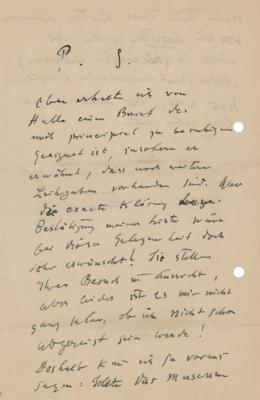 P. S.
Eben erhalte ich von
Halle einen Brief der
mich principiell zu beruhigen
geeignet ist, insofern er
erwähnt, dass noch weitere
Leihgaben vorhanden sind. Aber
die exacte Klärung
Bestätigung meiner Liste wäre
bei dieser Gelegenheit doch
sehr erwünscht! Sie stellen
Ihren Besuch in Aussicht,
aber leider ist es mir nicht
ganz klar, ob ich nicht schon
abgereist sein werde!
Deshalb kann ich ja voraus
sagen: Sollte das Museum